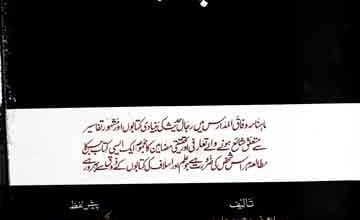 ماہنامہ وفاق المدارس میں رجال حدیث کی بنیادی کتابوں اور مشہور تفاسیر
سے متعلق شائع ہونے والے تعارفی اور تحقیقی مضامین کا مجموعہ ایک ایسی کتاب جس کا
مطالعہ ہر اس شخص کی ضرورت ہے جو علم اور اسلاف کی کتابوں کے ذوق سے بہرہ ور ہے
تالیف
پیش لفظ